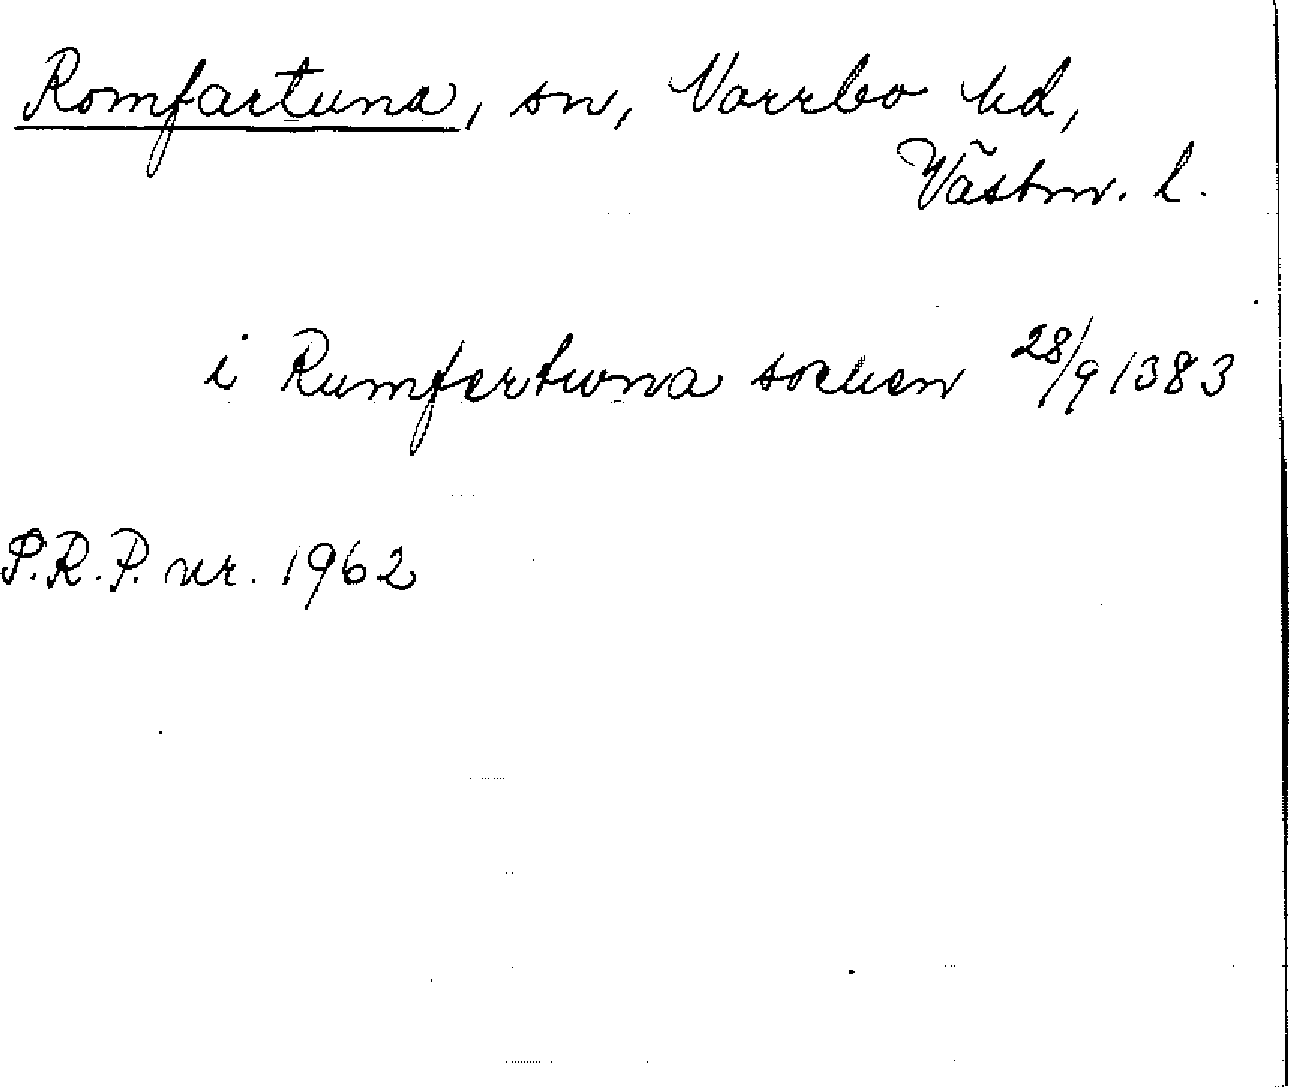 Romfartuna, sn, Norrbo hd,
Västm. l.
i Rumfertuna soc̈ken 28/9 1383
P.R.P. nr. 1962